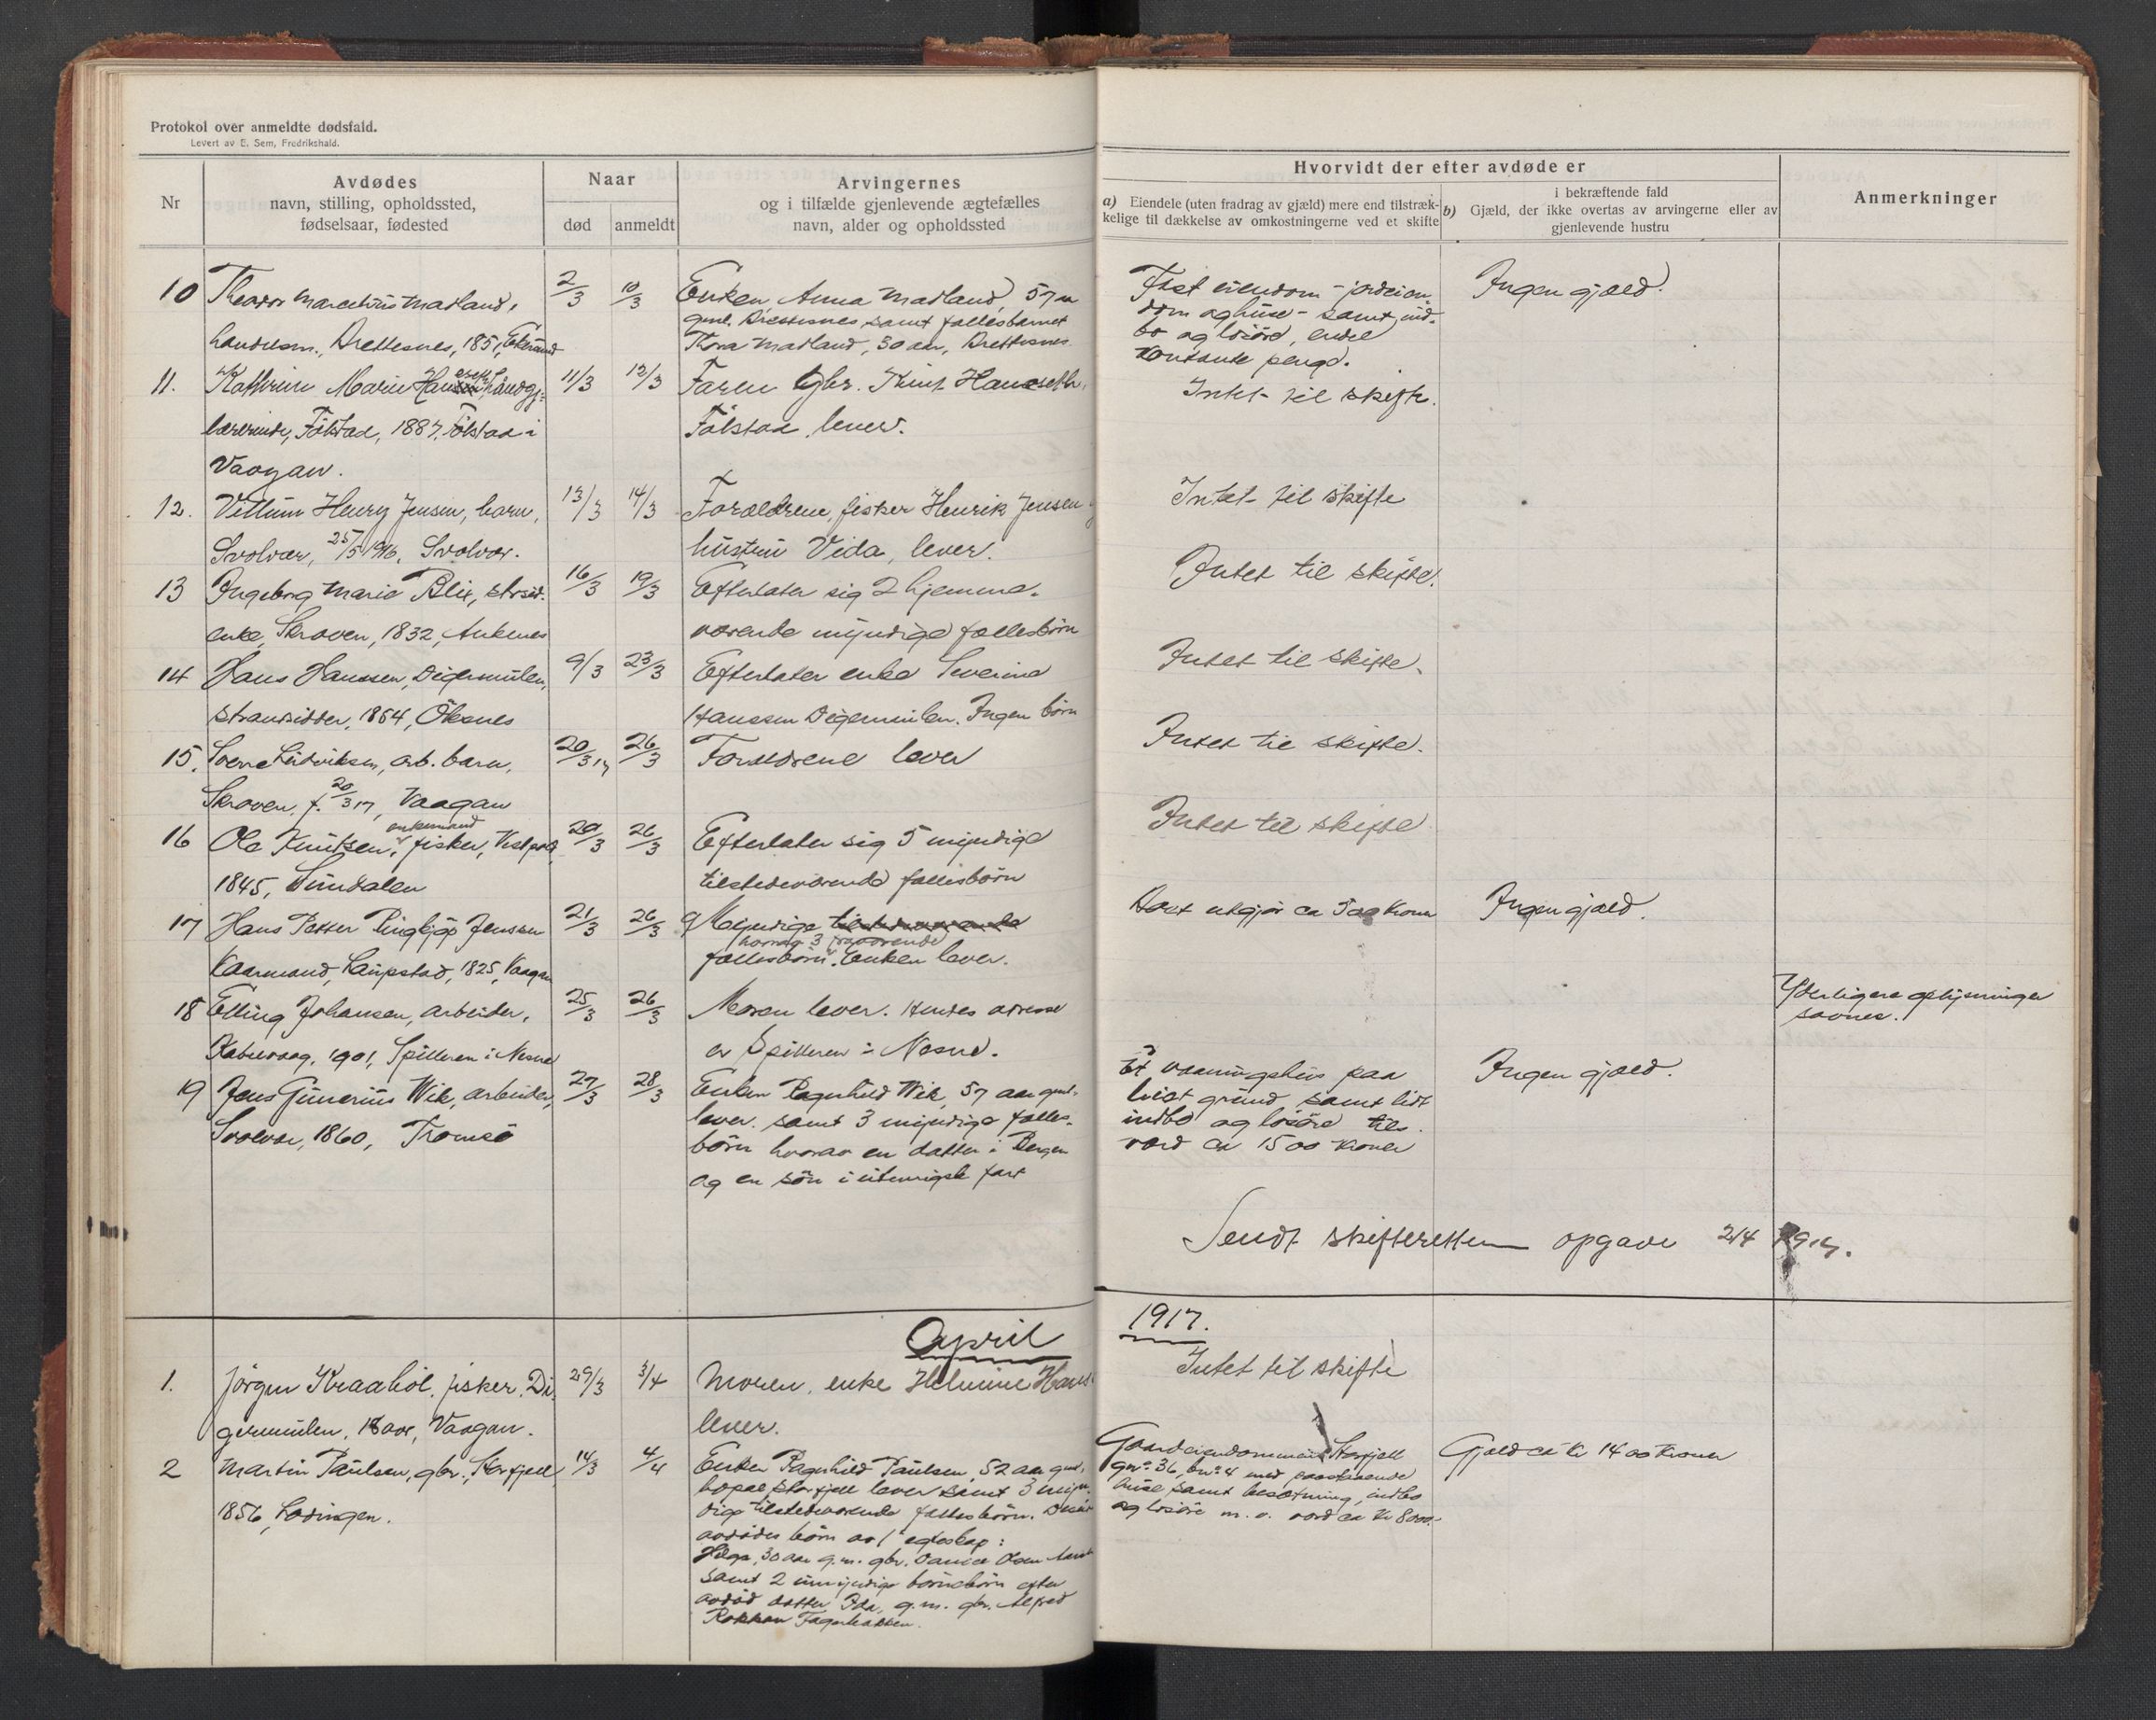 Protokol over anmeldte dødsfald.
Levert av E. Sem, Fredrikshald.
Nr
Avdødes
navn, stilling, opholdssted,
fødselsaar, fødested
Naar
død
anmeldt
Arvingernes
og i tilfælde gjenlevende ægtefælles
navn, alder og opholdssted
Hvorvidt der efter avdøde er
a) Eiendele (uten fradrag av gjæld) mere end tilstræk-
kelige til dækkelse av omkostningerne ved et skifte
i bekræftende fald
b) Gjæld, der ikke overtas av arvingerne eller av
gjenlevende hustru
Anmerkninger
10 Theodor Marcelius Madland, 2/3 10/3 Enken Anna Madland, 57 aar
gml. Brettesnes samt fællesbarnet
handelsm., Brettesnes, 1851, Ekersund
Thora Madland, 30 aar, Brettesnes
Fast eiendom - jordeien-
dom og huse - samt ind-
bo og løsøre, endel
kontante penge.
Ingen gjæld.
11. Kathrine Marie Hanseth, haandgj. 11/3 12/3 Faren gbr. Knut Hanseth,
lærerinde, Følstad, 1887, Følstad i
Følstad, lever.
Vaagan.
Intet til skifte.
12. Henry Jensen, barn, 13/3 14/3 Forældrene, fisker Henrik Jensen og
Svolvær, 25/5 1916, Svolvær.
hustru Vida, lever.
Intet til skifte
13 Ingeborg Marie Blix, strsid. 16/3 19/3 Efterlater sig 2 hjemme-
enke, Skroven, 1832, Ankenes
værende myndige fællesbørn
Intet til skifte.
14 Hans Hanssen, Digermulen, 9/3 23/3 Efterlater enke Severine
strandsidder, 1864, Öksnes
Hanssen Digermulen. Ingen børn
Intet til skifte.
15. Sverre Ludviksen, arb. barn, 20/3 17 26/3 Forældrene lever
Skroven, f. 20/3 17, Vaagan
Intet til skifte.
enkemand
16 Ole Knutsen, fisker, Vestpold, 20/3 26/3 Efterlater sig 5 myndige
1845, Sundalen
tilstedeværende fællesbørn
Intet til skifte
17 Hans Petter Ringkjøp Jenssen 21/3 26/3 9 Myndige tilstedeværende
hvorav 3 fraværende
Kaarmand, Laupstad, 1825, Vaagan
fællesbørn. Enken lever.
Boet utgjør ca 500 kroner
Ingen gjæld.
18 Elling Johansen, arbeider, 25/3 26/3 Moren lever. Hendes adresse
Kabelvaag, 1901, Spilleren i Nesne
er Spilleren i Nesne.
Yderligere oplysninger
savnes.
19 Jens Gunerius Wik, arbeider, 27/3 28/3 Enken Ragnhild Wik, 57 aar gml.
Svolvær, 1860, Tromsø
lever. samt 3 myndige fælles-
børn hvorav en datter i Bergen
og en søn i utenrigsk fart
Et vaaningshus paa
leiet grund samt lidt
indbo og løsøre tils.
værd ca 1500 kroner
Ingen gjæld.
Sendt skifteretten opgave 2/4 1917.
April
1917.
1. Jørgen Kraahol, fisker, Di- 29/3 3/4 Moren, enke Helmine Hans.
germulen, 18 aar, Vaagan.
lever.
Intet til skifte
2 Martin Paulsen, gbr., Storfjell, 14/3 4/4 Enken Ragnhild Paulsen, 52 aar gml.,
1856, Lødingen.
bopæl Storfjell lever samt 3 myn-
dige tilstedeværende fællesbørn. Desuten
avdødes børn av 1' egteskap:
Helga, 30 aar g.m. gbr. Daniel Olsen
samt 2 umyndige børnebørn efter
avdød datter Ida, g.m. gbr. Alfred
Rokkan Fagerbakken.
Gaardeiendommen Storfjell
gno. 36, bno. 4 med paastaaende
huse samt besætning, indbo
og løsøre m. v. værd ca kr 8000.-
Gjæld ca kr 1400 kroner